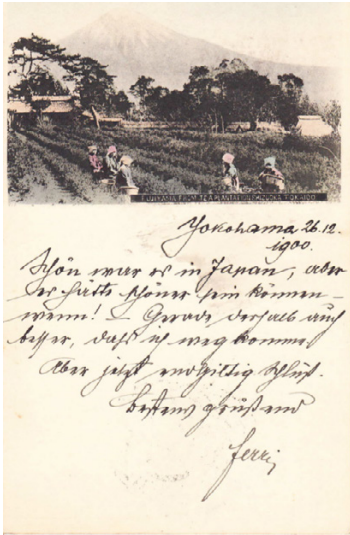 FUJIYAMA FROM TEA PLANTATION SHIZUOKA TOKAIDO
Yokohama 26.12.
1900.
Schön war es in Japan, aber
es hätte schöner sein können –
wenn! – Gerade deshalb auch
besser, daß ich weg komme.
Aber jetzt endgiltig Schluß.
Bestens grüßend
Ferri